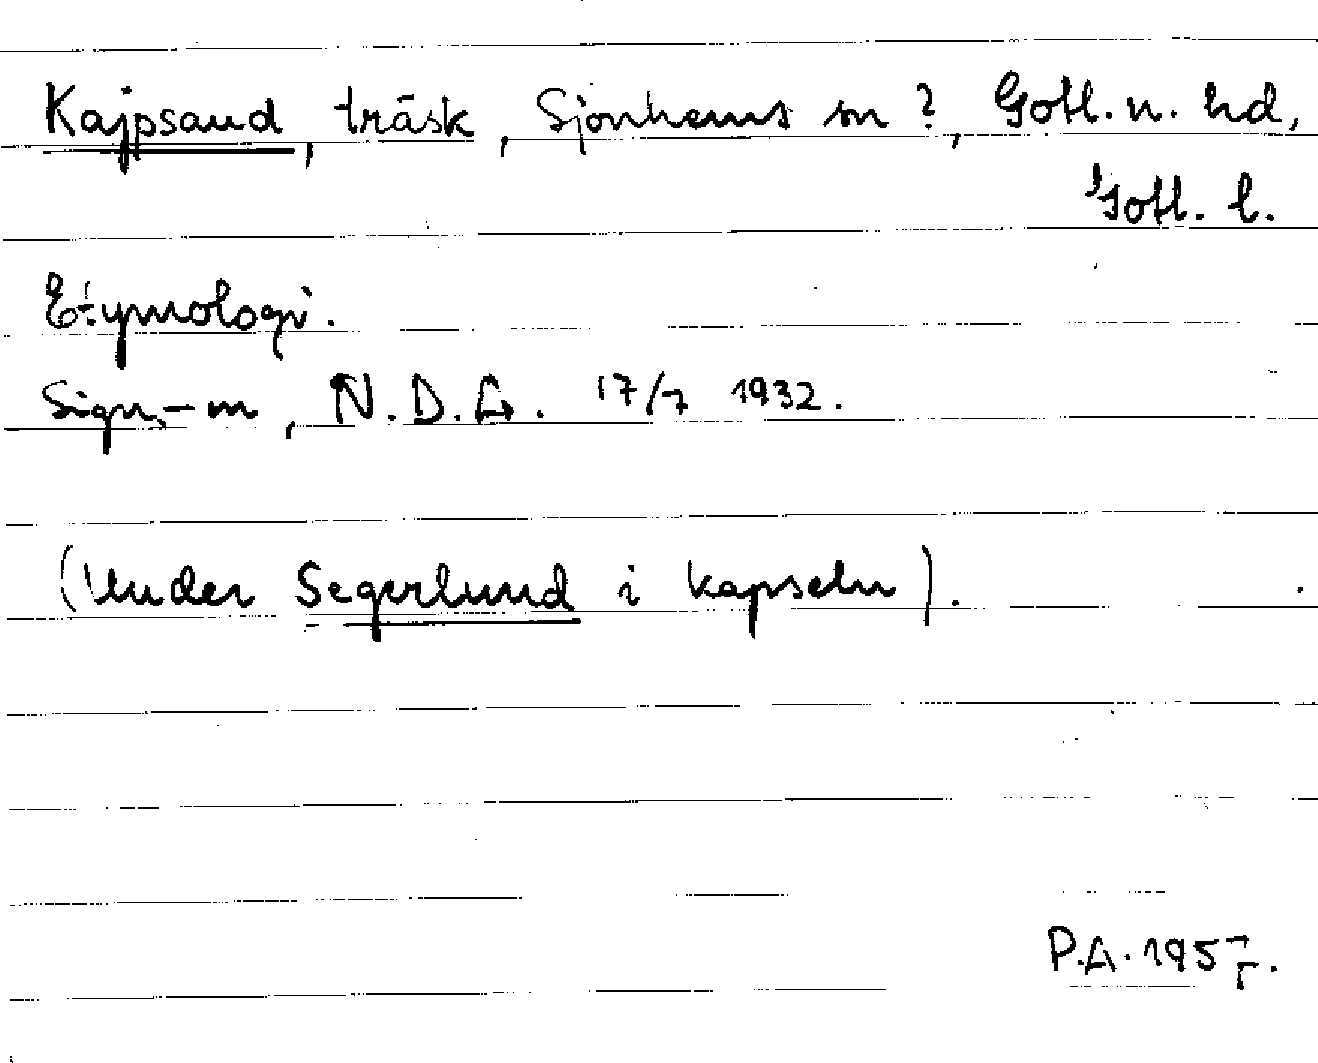 Kajpsand, träsk, Sjonhems sn?, Gotl. n. hd,
Gotl. l.
Etymologi.
Sign. -m, N.D.A. 17/7 1932.
(Under Segerlund i kapseln).
P.A. 1957.